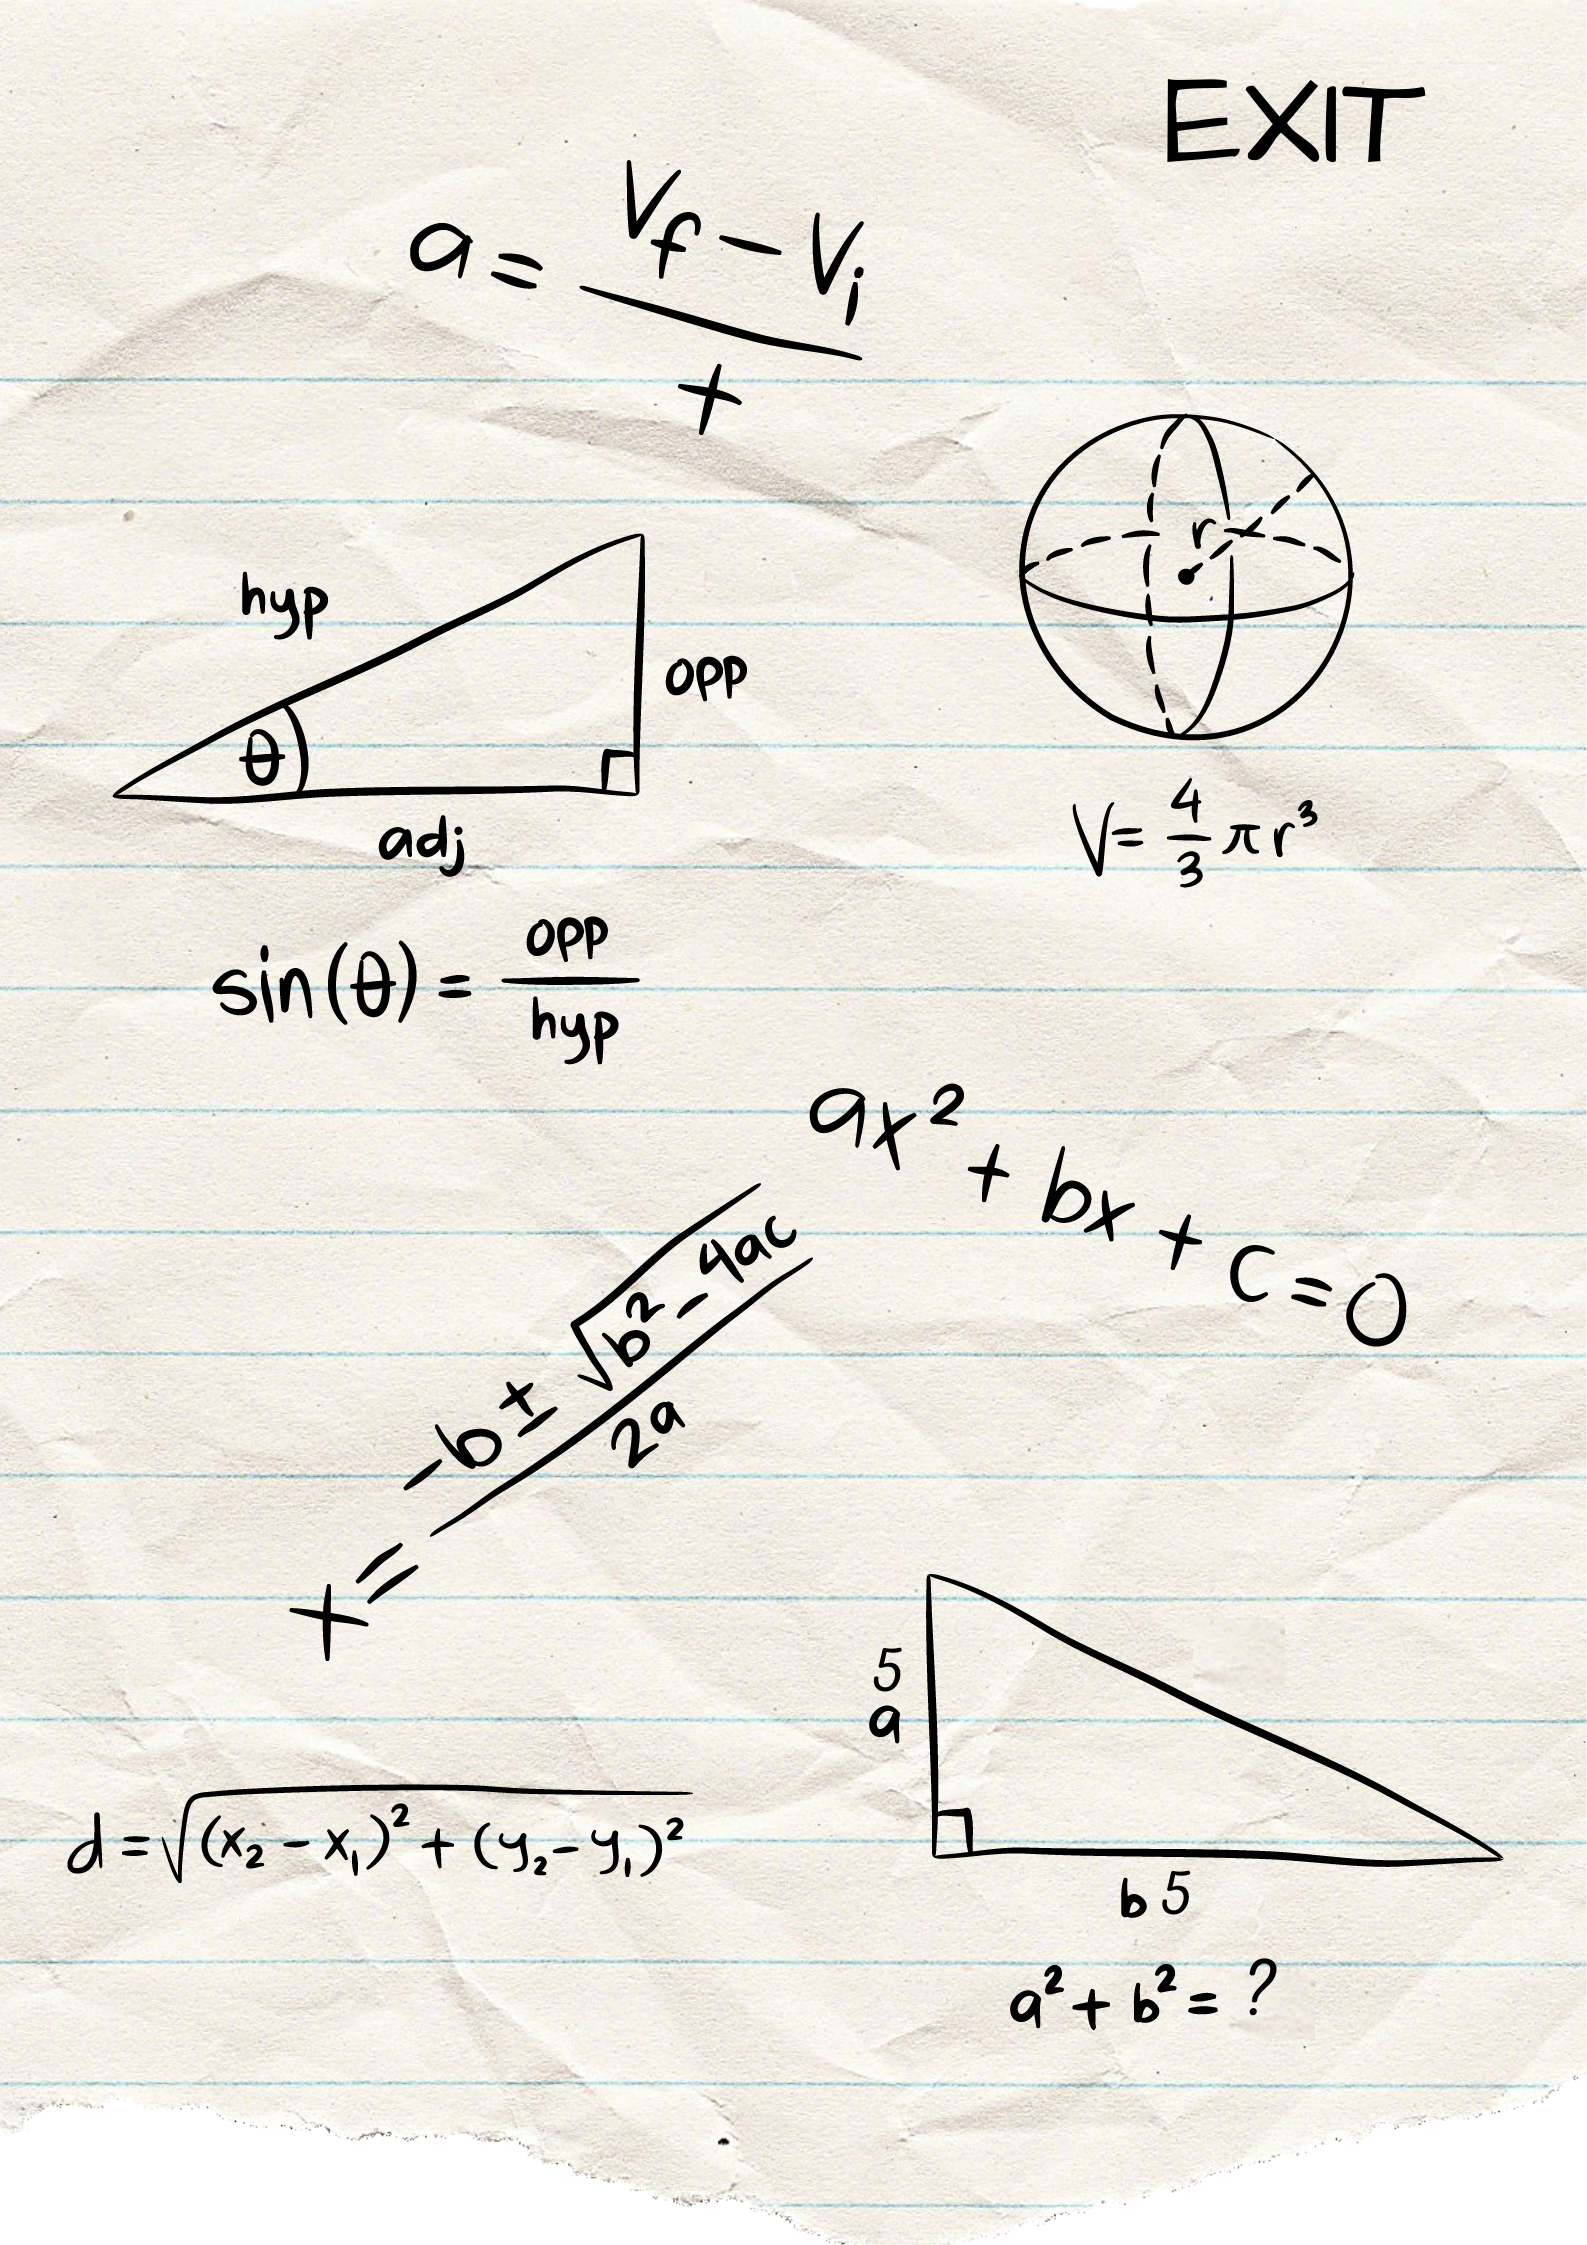 EXIT
a = Vf - Vi
t
hyp
r
opp
θ
adj
V = 4/3 π r³
sin(θ) = opp
hyp
ax² + bx + c = 0
x = -b ± √b² - 4ac
2a
5
a
d = √(x₂ - x₁)² + (y₂ - y₁)²
b 5
a² + b² = ?